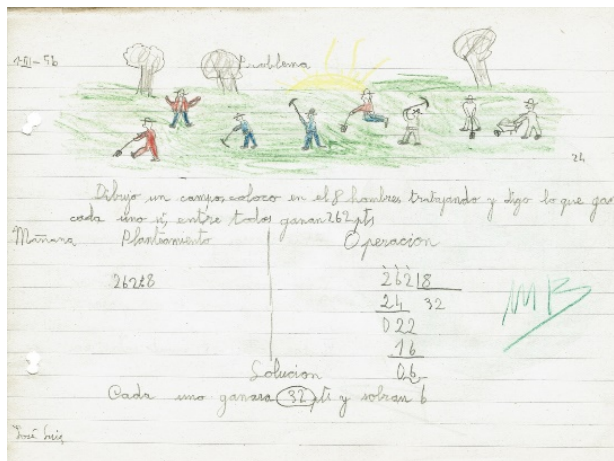 1-III-56
Problema
24
Dibujo un campo, coloco en el 8 hombres trabajando y digo lo que ga
cada uno si, entre todos ganan 262 pts
Mañana Planteamiento Operacion
262:8 262 8
24 32
022
16
06
MB
Solucion
Cada uno ganara 32 pts y sobran 6
José Luis